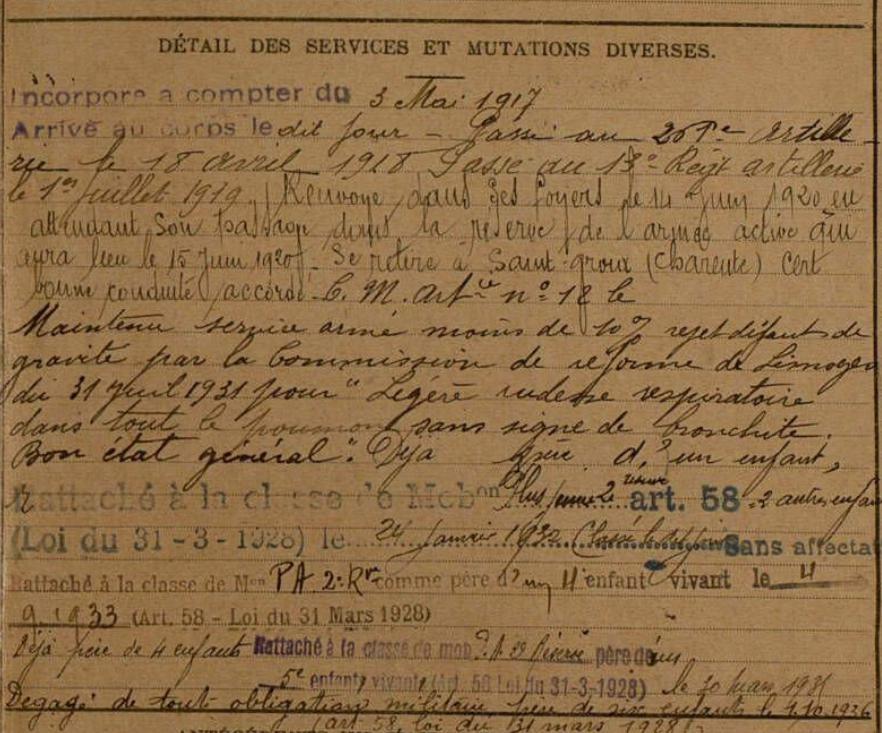 DÉTAIL DES SERVICES ET MUTATIONS DIVERSES.
Incorporé a compter du 3 Mai 1917
Arrivé au corps le dit jour - Passé au Artille-
rie le 18 avril 1918 Passé au 13e Regt artillerie
le 1er Juillet 1919. Renvoyé dans ses foyers le 14 Juin 1920 en
attendant son passage dans la réserve de l'armée active qui
aura lieu le 15 Juin 1920. Se retire à Saint-groux (Charente) cert
bonne conduite accordé C. M. n° 12 le
Maintenu service armé moins de 10% rejet défaut de
gravité par la Commission de réforme de Limoges
du 31 1931 pour "Légère rudesse respiratoire
dans tout le poumon sans signe de bronchite.
Bon état général". Déjà père d'un enfant,
Rattaché à la classe de Mobon Plus art. 58 2 autres enfan
(Loi du 31-3-1928) le 24 Janvier 1932 Classé Sans affectat
Rattaché à la classe de Mon P.A. 2e Rve comme père d'un 4 enfant vivant le 4
9. 1933 (Art. 58 - Loi du 31 Mars 1928)
Déjà père de 4 enfants Rattaché à la classe de mob. Réserve père de un
5e enfant vivant (Art. 58 Loi du 31-3-1928) le 30 mars
Dégagé de toute obligation militaire père de six enfants le 1936
(art. 58, loi du 31 mars 1928)